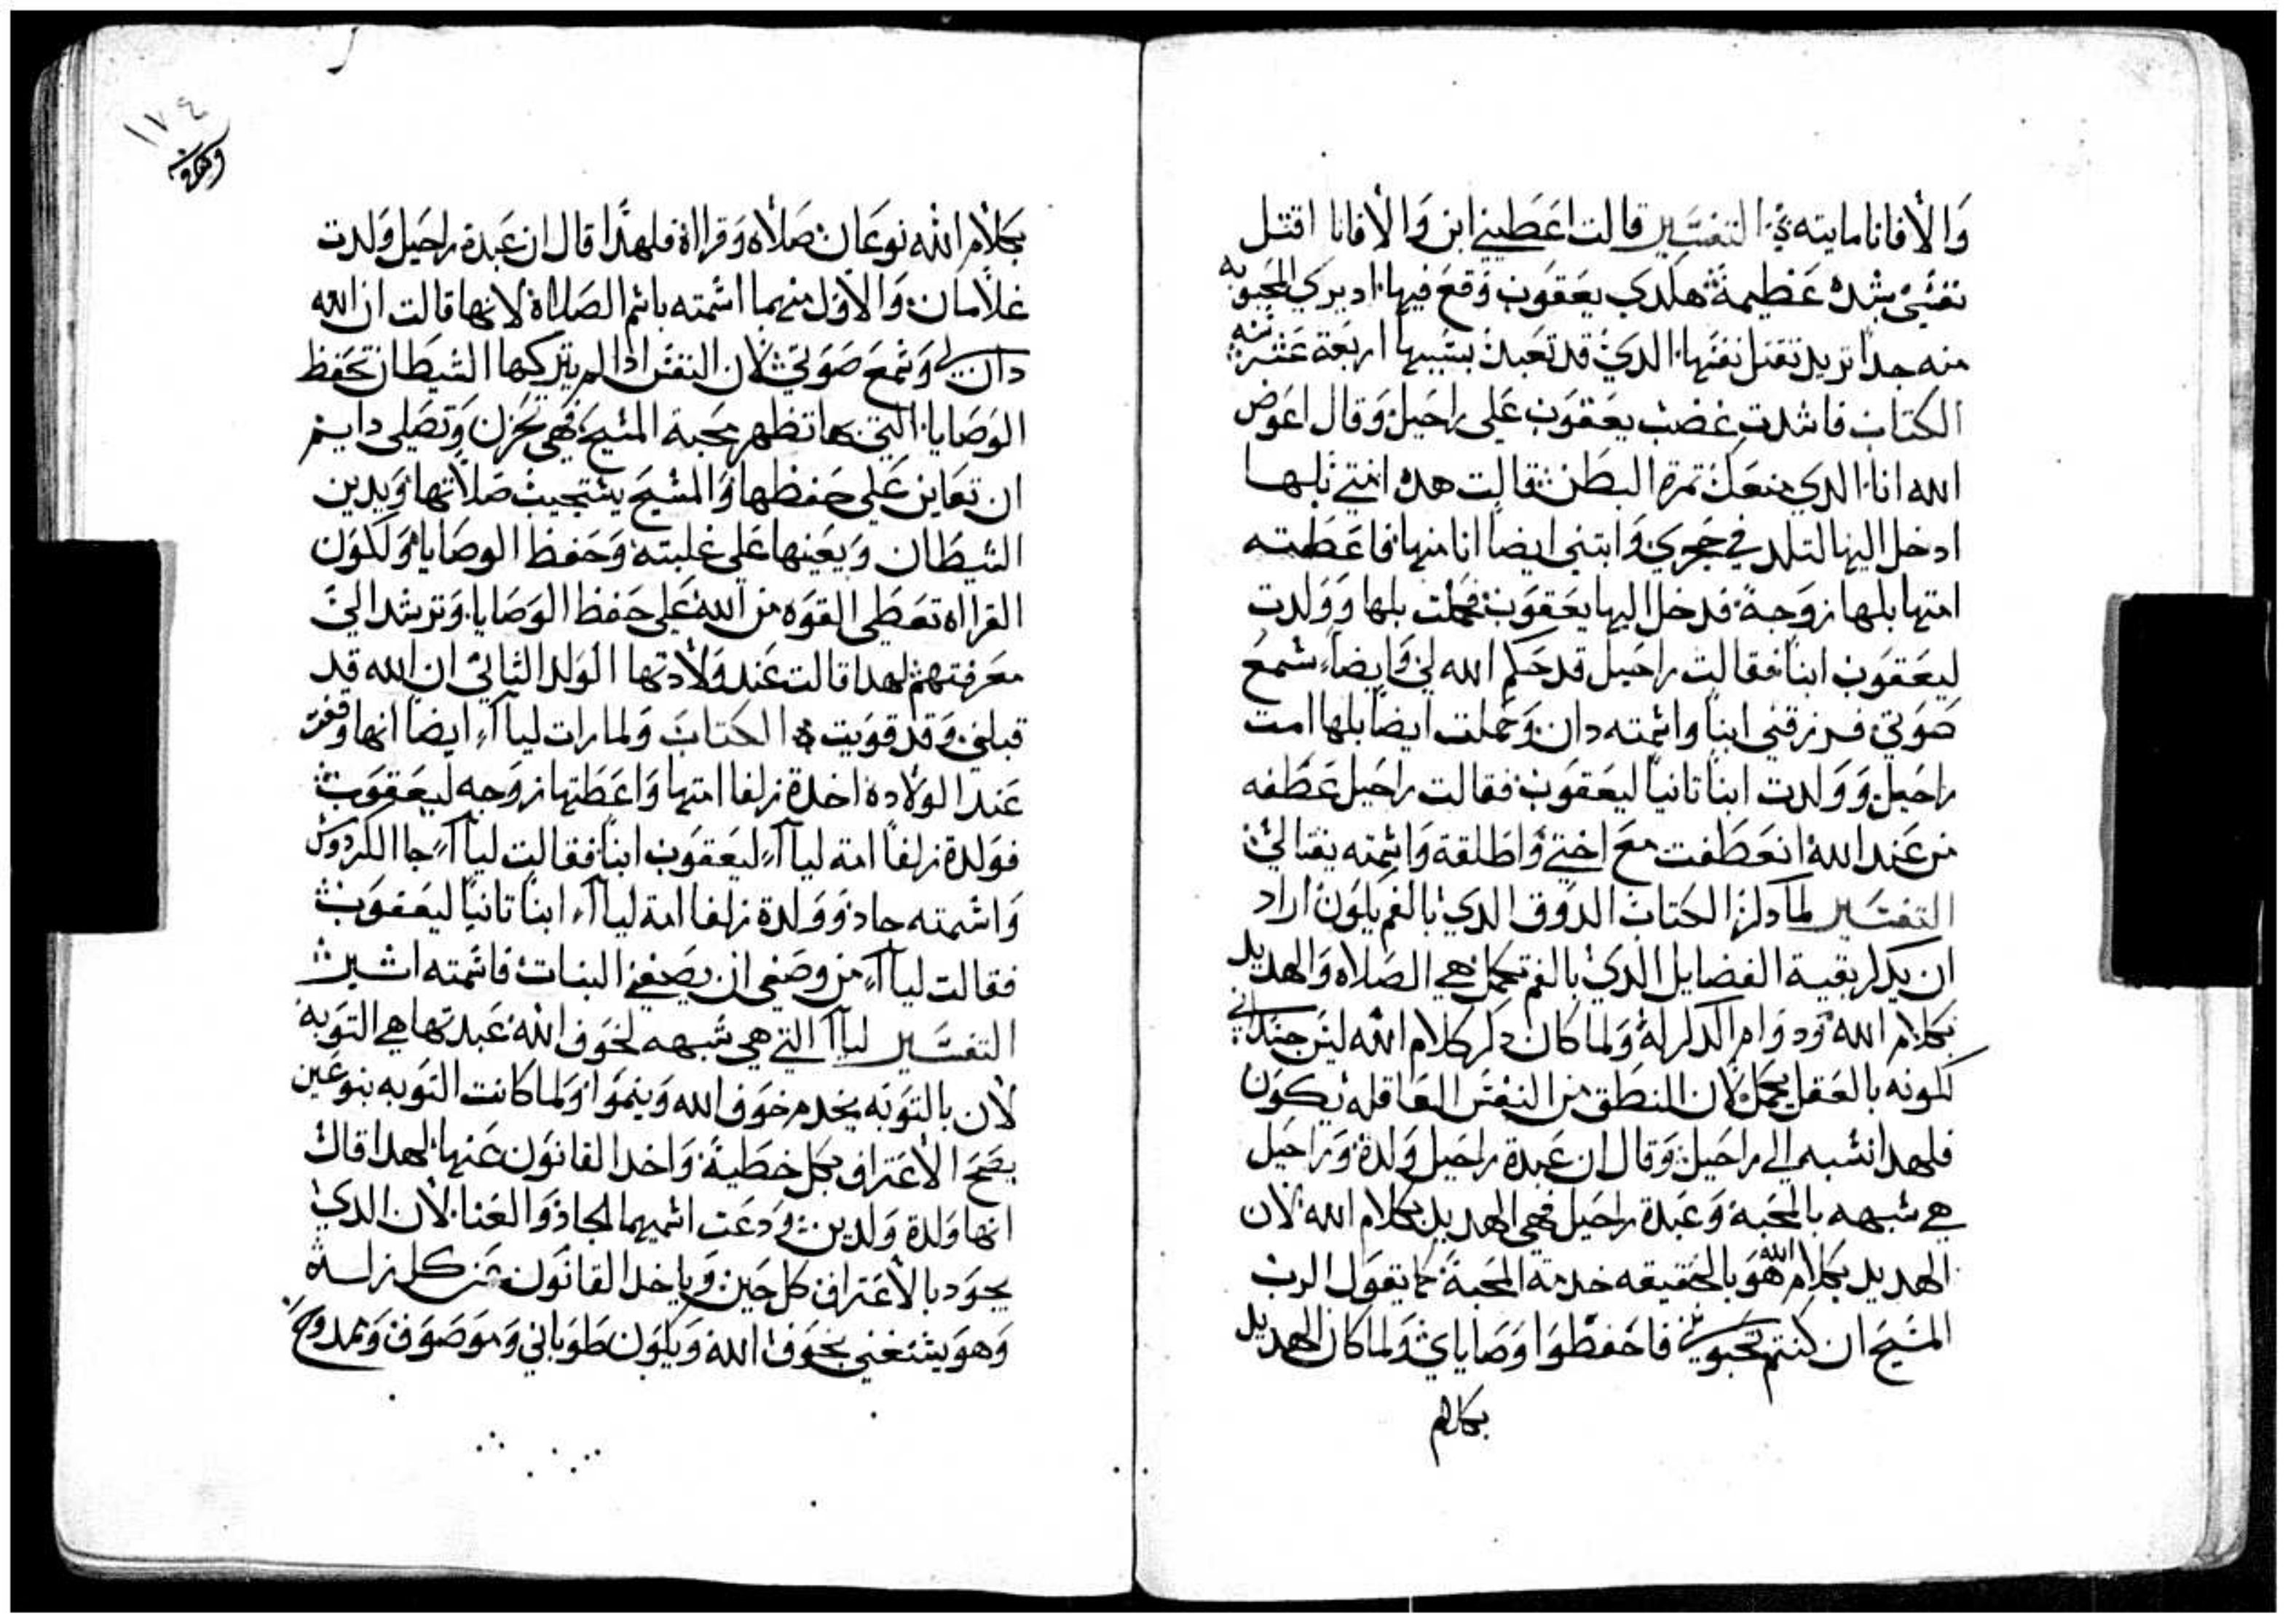 والافانا مايته التفسير قالت اعطيني ابن والافانا اقتل
نفسي بشده عظيمة هكدي يعقوب وقع فيها اد يري المحبوبه
منه جدا تريد تقتل نفسها الدي قد تعبد بسببها اربعة عشر سنه
الكتاب فاشدت غضب يعقوب على راحيل وقال اعوض
الله انا الدي منعك تمرة البطن قالت هده امتي بلها
ادخل اليها لتلد في حجري وابتني ايضا انا منها فاعطته
امتها بلها زوجة فدخل اليها يعقوب فحملت بلها وولدت
ليعقوب ابنا فقالت راحيل قد حكم الله لي وايضا سمع
صوتي فرزقني ابنا واسمته دان وحملت ايضا بلها امت
راحيل وولدت ابنا تانيا ليعقوب فقالت راحيل عطفه
من عند الله انعطفت مع اختي واطلقة واسمته يفتالي
التفسير لما دكر الكتاب الدوق الدي بالفم يكون اراد
ان يدكر بقية الفضايل الدي بالفم تكمل هي الصلاه والهديد
بكلام الله ودوام الدكر له ولما كان دكر كلام الله ليس جسداني
لكونه بالعقل يكمل لان النطق من النفس العاقله يكون
فلهدا نسبه الى راحيل وقال ان عبدة راحيل ولدة وراحيل
هي شبهه بالمحبة وعبدة راحيل فهي الهديد بكلام الله لان
الهديد بكلام الله هو بالحقيقه خدمة المحبة كما يقول الرب
المسيح ان كنتم تحبوني فاحفظوا وصاياي ولما كان الهديد
بكلام
١٧٤
وقف
بكلام الله نوعان صلاه وقرااة فلهدا قال ان عبدة راحيل ولدت
غلامان والاول منهما اسمته باسم الصلااة لانها قالت ان الله
دان لي وسمع صوتي لان النفس ادا لم يتركها الشيطان تحفظ
الوصايا التي بها تظهر محبة المسيح فهي تحزن وتصلي دايم
ان تعاين على حفظها والمسيح يستجيب صلاتها ويدين
الشيطان ويعينها على غلبته وحفظ الوصايا ولكون
القرااه تعطي القوه من الله على حفظ الوصايا وترشد الى
معرفتهم لهدا قالت عند ولادتها الولد التاني ان الله قد
قبلني وقد قويت الكتاب ولما رات ليااء ايضا انها وقفت
عند الولاده اخدة زلفا امتها واعطتها زوجه ليعقوب
فولدة زلفا امة ليااء ليعقوب ابنا فقالت ليااء جا الكردوس
واسمته جاد وولدة زلفا امة ليااء ابنا تانيا ليعقوب
فقالت ليااء من وصفى ان يصفني البنات فاسمته اشير
التفسير لياا التي هي شبهه لخوف الله عبدتها هي التوبه
لان بالتوبه يخدم خوف الله وينموا ولما كانت التوبه بنوعين
يصح الاعتراف بكل خطية واخد القانون عنها لهدا قال
انها ولدة ولدين ودعت اسميهما الجاد والغنا لان الدي
يجود بالاعتراف كل حين وياخد القانون عن كل زله
وهو يستغني بخوف الله ويكون طوباني وموصوف وممدوح